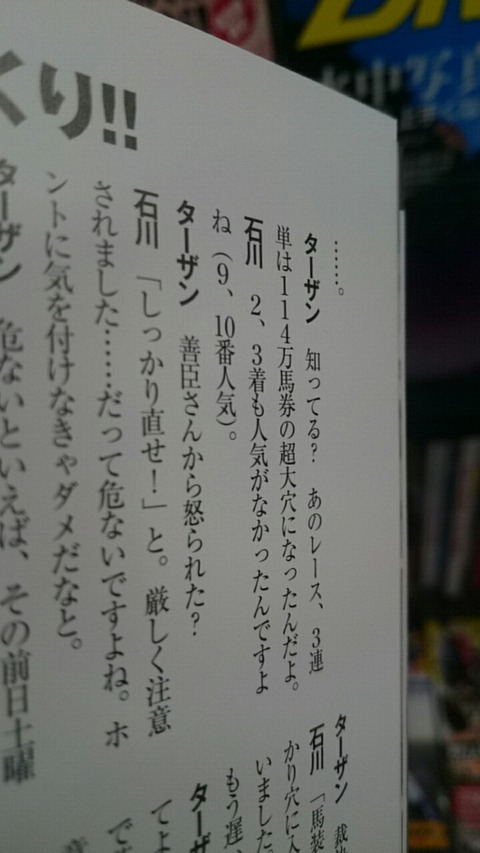 くり!!
……。
ターザン　知ってる?　あのレース、3連
単は114万馬券の超大穴になったんだよ。
石川　2、3着も人気がなかったんですよ
ね（9、10番人気）。
ターザン　善臣さんから怒られた?
石川　「しっかり直せ!」と。厳しく注意
されました……だって危ないですよね。ホ
ントに気を付けなきゃダメだなと。
ターザン　危ないといえば、その前日土曜
ターザン
石川　「馬装
かり穴に
いました。
もう遅
ターザ
てよ
水中写真